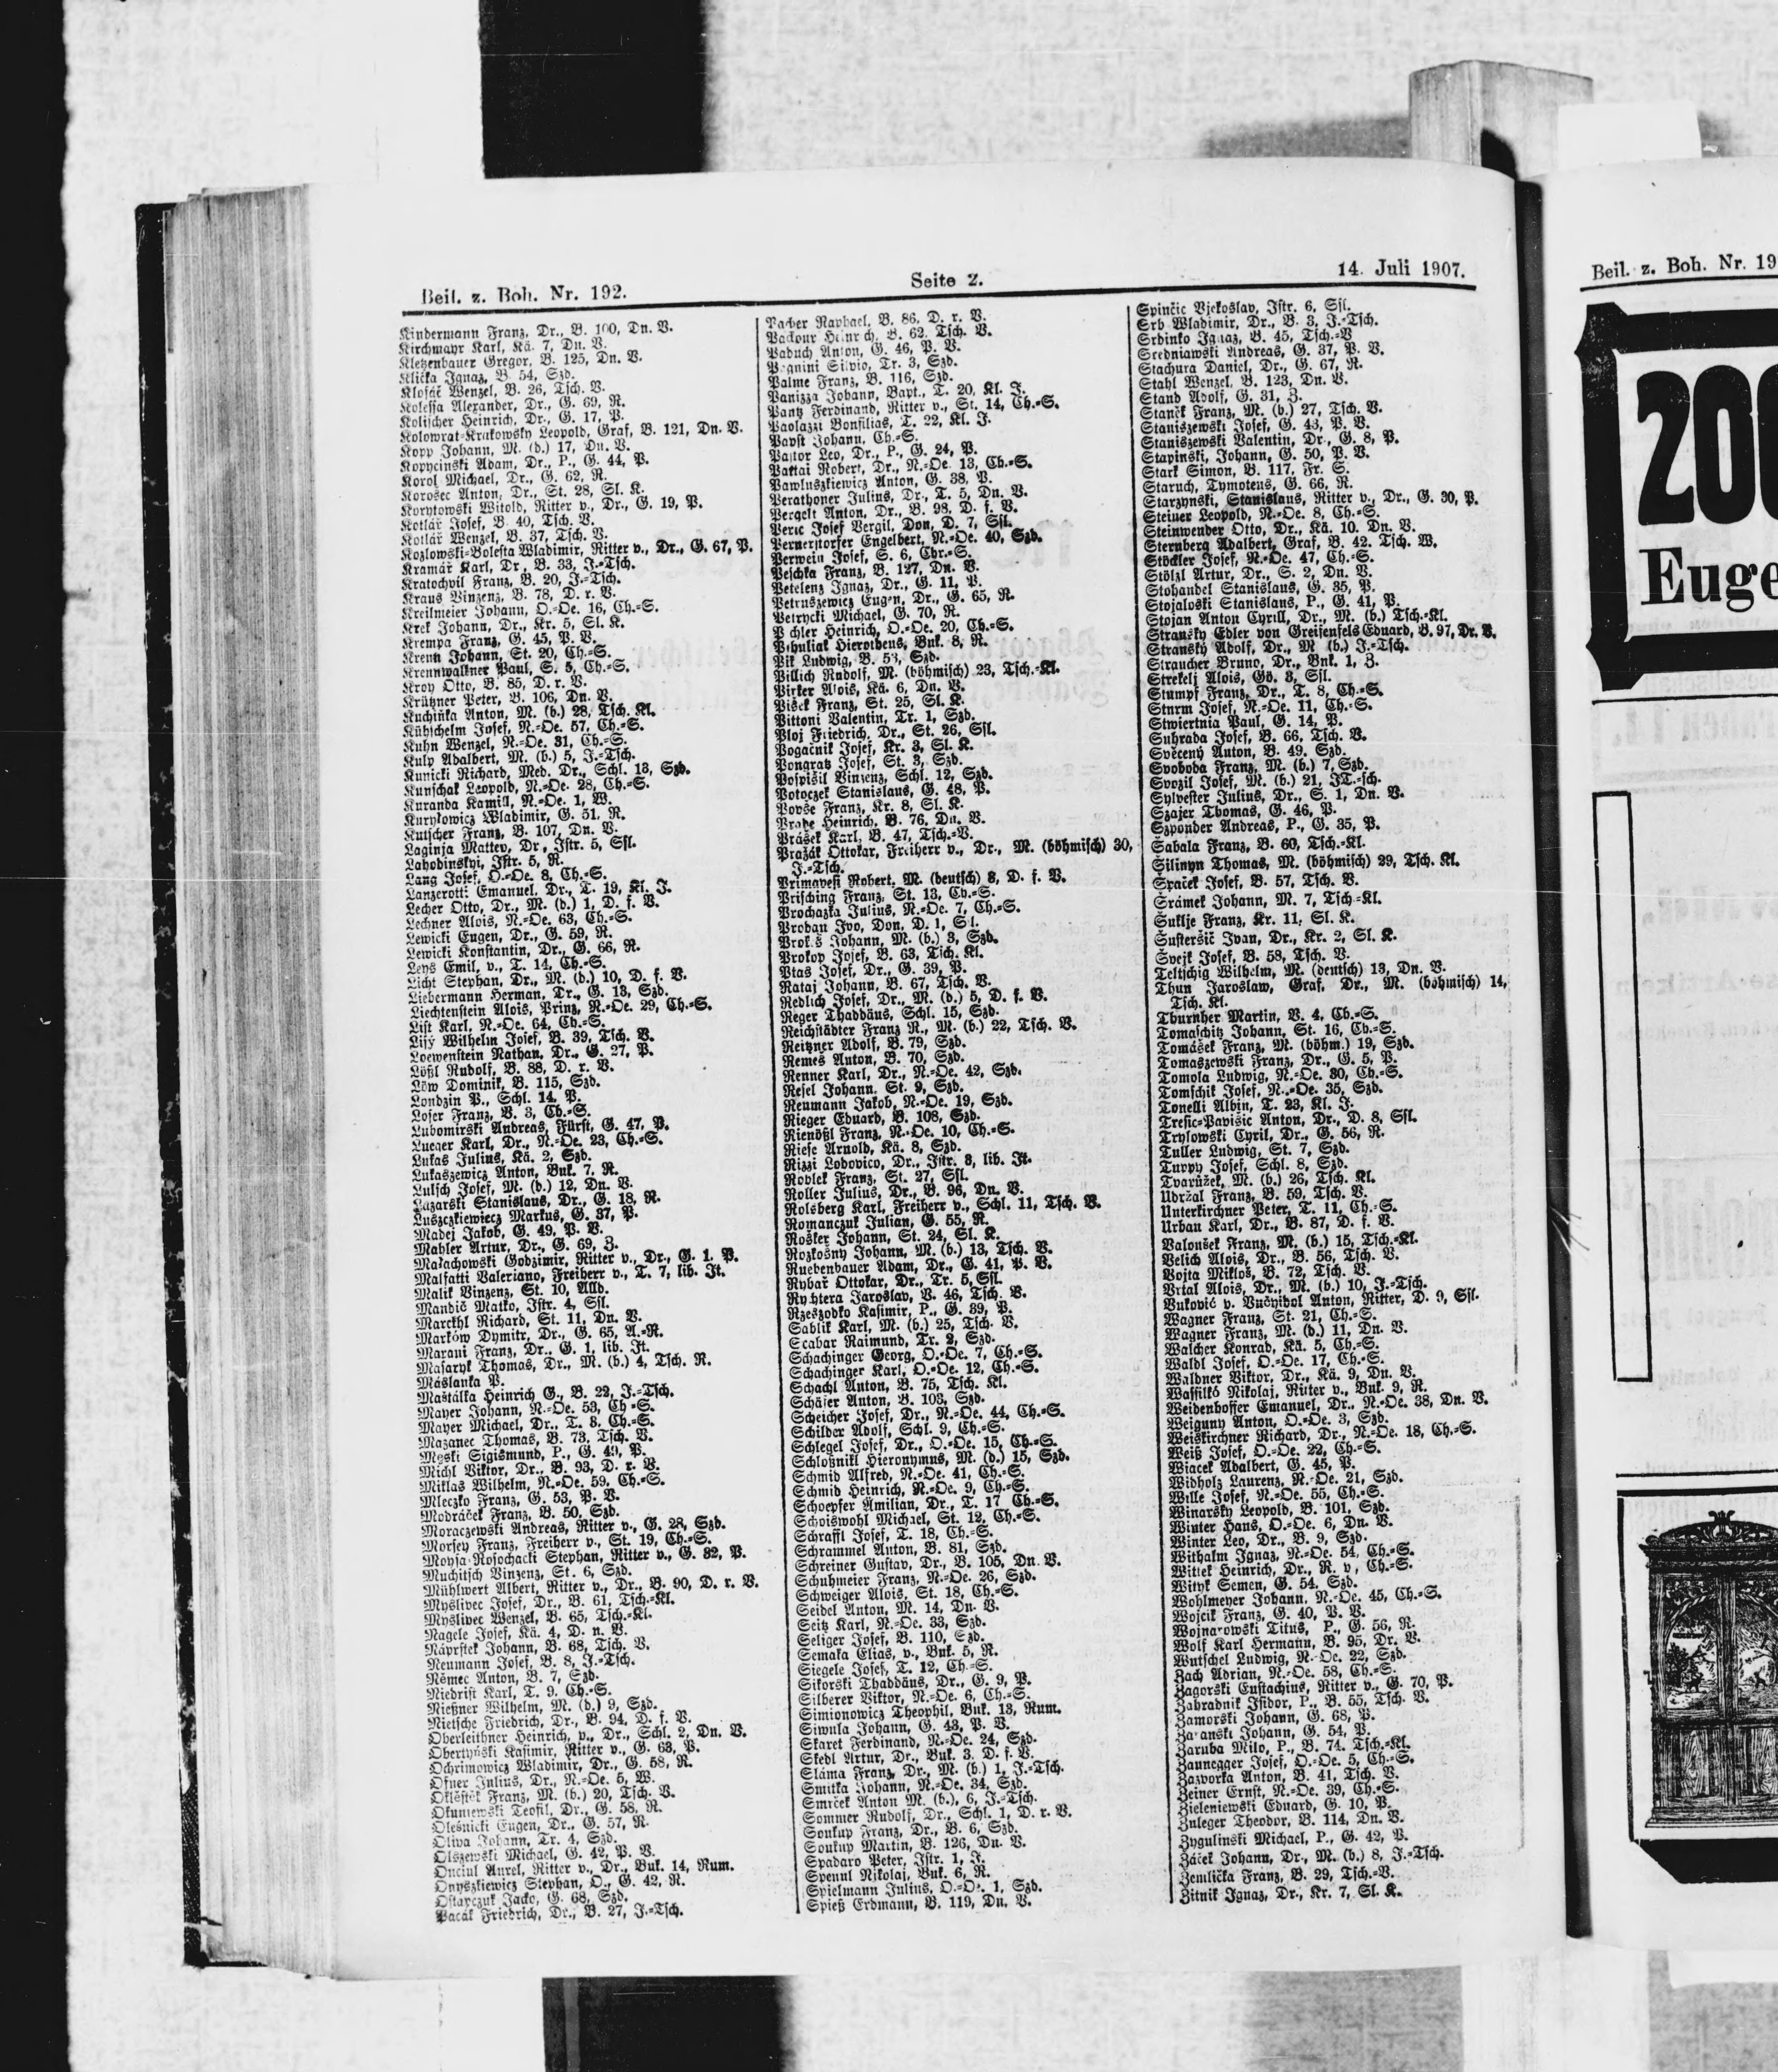 Beil. z. Boh. Nr. 192.
Seite 2.
14. Juli 1907.
Kindermann Franz, Dr., B. 100, Dn. V.
Kirchmayr Karl, Kä. 7, Dn. V.
Kletzenbauer Gregor, B. 125, Dn. V.
Klička Ignaz, B. 54, Szd.
Klofáč Wenzel, B. 26, Tsch. V.
Kolessa Alexander, Dr., G. 69, R.
Kolischer Heinrich, Dr., G. 17, P.
Kolowrat-Krakowsky Leopold, Graf, B. 121, Dn. V.
Kopp Johann, M. (d.) 17, Dn. V.
Kopycinski Adam, Dr., P., G. 44, P.
Korol Michael, Dr., G. 62, R.
Korošec Anton, Dr., St. 28, Sl. K.
Korytowski Witold, Ritter v., Dr., G. 19, P.
Kotlář Josef, B. 40, Tsch. V.
Kotlář Wenzel, B. 37, Tsch. V.
Kozlowski-Bolesta Wladimir, Ritter v., Dr., G. 67, P.
Kramář Karl, Dr, B. 33, J.=Tsch.
Kratochvil Franz, B. 20, J.=Tsch.
Kraus Vinzenz, B. 78, D. r. V.
Kreilmeier Johann, O.=Oe. 16, Ch.=S.
Krek Johann, Dr., Kr. 5, Sl. K.
Krempa Franz, G. 45, P. V.
Krenn Johann, St. 20, Ch.=S.
Krennwallner Paul, S. 5, Ch.=S.
Kroy Otto, B. 85, D. r. V.
Krützner Peter, B. 106, Dn. V.
Kuchiňka Anton, M. (b.) 28, Tsch. Kl.
Kübschelm Josef, N.=Oe. 57, Ch.=S.
Kuhn Wenzel, N.=Oe. 31, Ch.=S.
Kulp Adalbert, M. (b.) 5, J.=Tsch.
Kunicki Richard, Med. Dr., Schl. 13, Szd.
Kunschak Leopold, N.=Oe. 28, Ch.=S.
Kuranda Kamill, N.=Oe. 1, W.
Kurylowicz Wladimir, G. 51, R.
Kutscher Franz, B. 107, Dn. V.
Laginja Mattev, Dr, Istr. 5, Ssl.
Lahodinskyi, Istr. 5, R.
Lang Josef, O.=Oe. 8, Ch.=S.
Lanzerotti Emanuel, Dr., T. 19, Kl. J.
Lecher Otto, Dr., M. (d.) 1, D. f. V.
Lechner Alois, N.=Oe. 63, Ch.=S.
Lewicki Eugen, Dr., G. 59, R.
Lewicki Konstantin, Dr., G. 66, R.
Leys Emil, v., T. 14, Ch.=S.
Licht Stephan, Dr., M. (d.) 10, D. f. V.
Liebermann Herman, Dr., G. 13, Szd.
Liechtenstein Alois, Prinz, N.=Oe. 29, Ch.=S.
List Karl, N.=Oe. 64, Ch.=S.
Lisý Wilhelm Josef, B. 39, Tsch. V.
Loewenstein Nathan, Dr., G. 27, P.
Lößl Rudolf, B. 88, D. r. V.
Löw Dominik, B. 115, Szd.
Londzin P., Schl. 14, P.
Loser Franz, B. 3, Ch.=S.
Lubomirski Andreas, Fürst, G. 47, P.
Lueger Karl, Dr., N.=Oe. 23, Ch.=S.
Lukas Julius, Kä. 2, Szd.
Lukaszewicz Anton, Buk. 7, R.
Lulsch Josef, M. (d.) 12, Dn. V.
Lazarski Stanislaus, Dr., G. 18, R.
Luszczkiewiecz Markus, G. 37, P.
Madej Jakob, G. 49, P. V.
Mahler Artur, Dr., G. 69, Z.
Małachowski Godzimir, Ritter v., Dr., G. 1, P.
Malfatti Valeriano, Freiherr v., T. 7, lib. It.
Malik Vinzenz, St. 10, Alld.
Mandič Matko, Istr. 4, Ssl.
Marckhl Richard, St. 11, Dn. V.
Marków Dymitr, Dr., G. 65, A.=R.
Marani Franz, Dr., G. 1, lib. It.
Masaryk Thomas, Dr., M. (b.) 4, Tsch. R.
Máslanka P.
Mašťálka Heinrich G., B. 22, J.=Tsch.
Mayer Johann, N.=Oe. 53, Ch=S.
Mayer Michael, Dr., T. 8, Ch.=S.
Mazanec Thomas, B. 73, Tsch. V.
Męski Sigismund, P., G. 49, P.
Michl Viktor, Dr., B. 93, D. r. V.
Miklas Wilhelm, N.=Oe. 59, Ch.=S.
Mleczko Franz, G. 53, P. V.
Modráček Franz, B. 50, Szd.
Moraczewski Andreas, Ritter v., G. 28, Szd.
Morsey Franz, Freiherr v., St. 19, Ch.=S.
Moysa-Rosochacki Stephan, Ritter v., G. 32, P.
Muchitsch Vinzenz, St. 6, Szd.
Mühlwert Albert, Ritter v., Dr., B. 90, D. r. V.
Myslivec Josef, Dr., B. 61, Tsch.=Kl.
Myslivec Wenzel, B. 65, Tsch.=Kl.
Nagele Josef, Kä. 4, D. n. V.
Návrstek Johann, B. 68, Tsch. V.
Neumann Josef, B. 8, J.=Tsch.
Němec Anton, B. 7, Szd.
Niedrist Karl, T. 9, Ch.=S.
Nießner Wilhelm, M. (d.) 9, Szd.
Nietsche Friedrich, Dr., B. 94, D. f. V.
Oberleithner Heinrich, v., Dr., Schl. 2, Dn. V.
Obertyński Kasimir, Ritter v., G. 63, P.
Ochrimowicz Wladimir, Dr., G. 58, R.
Ofner Julius, Dr., N.=Oe. 5, W.
Okleštěk Franz, M. (b.) 20, Tsch. V.
Okuniewski Teofil, Dr., G. 58, R.
Olesnicki Eugen, Dr., G. 57, R.
Oliva Johann, Tr. 4, Szd.
Olszewski Michael, G. 42, P. V.
Onciul Aurel, Ritter v., Dr., Buk. 14, Rum.
Onyszkiewicz Stephan, O., G. 42, R.
Ostapczuk Jacko, G. 68, Szd.
Pacák Friedrich, Dr., B. 27, J.=Tsch.
Pacher Raphael, B. 86, D. r. V.
Packour Heinrich, B. 62, Tsch. V.
Paduch Anton, G. 46, P. V.
Pagnini Silvio, Tr. 3, Szd.
Palme Franz, B. 116, Szd.
Panizza Johann, Bapt., T. 20, Kl. J.
Pantz Ferdinand, Ritter v., St. 14, Ch.=S.
Paolazzi Bonfilias, T. 22, Kl. J.
Pabst Johann, Ch.=S.
Pastor Leo, Dr., P., G. 24, P.
Pattai Robert, Dr., N.=Oe. 13, Ch.=S.
Pawluszkiewicz Anton, G. 38, P.
Perathoner Julius, Dr., T. 5, Dn. V.
Pergelt Anton, Dr., B. 98, D. f. V.
Peric Josef Vergil, Don, D. 7, Ssl.
Pernerstorfer Engelbert, N.=Oe. 40, Szd.
Perwein Josef, S. 6, Chr.=S.
Peschka Franz, B. 127, Dn. V.
Petelenz Ignaz, Dr., G. 11, P.
Petruszewicz Eugen, Dr., G. 65, R.
Petrycki Michael, G. 70, R.
Pichler Heinrich, O.=Oe. 20, Ch.=S.
Pihuliak Hierotheus, Buk. 8, R.
Pik Ludwig, B. 53, Szd.
Pillich Rudolf, M. (böhmisch) 23, Tsch.=Kl.
Pirker Alois, Kä. 6, Dn. V.
Pišek Franz, St. 25, Sl. K.
Pittoni Valentin, Tr. 1, Szd.
Ploj Friedrich, Dr., St. 26, Ssl.
Pogačnik Josef, Kr. 3, Sl. K.
Pongratz Josef, St. 3, Szd.
Pospišil Vinzenz, Schl. 12, Szd.
Potoczek Stanislaus, G. 48, P.
Povše Franz, Kr. 8, Sl. K.
Prade Heinrich, B. 76, Dn. V.
Prášek Karl, B. 47, Tsch.=V.
Pražák Ottokar, Freiherr v., Dr., M. (böhmisch) 30,
J.=Tsch.
Primavesi Robert, M. (deutsch) 8, D. f. V.
Prisching Franz, St. 13, Ch.=S.
Prochazka Julius, N.=Oe. 7, Ch.=S.
Prodan Ivo, Don, D. 1, Sl.
Prokeš Johann, M. (b.) 3, Szd.
Prokop Josef, B. 63, Tsch. Kl.
Ptas Josef, Dr., G. 39, P.
Rataj Johann, B. 67, Tsch. V.
Redlich Josef, Dr., M. (d.) 5, D. f. V.
Reger Thaddäus, Schl. 15, Szd.
Reichstädter Franz R., M. (b.) 22, Tsch. V.
Reitzner Adolf, B. 79, Szd.
Remes Anton, B. 70, Szd.
Renner Karl, Dr., N.=Oe. 42, Szd.
Resel Johann, St. 9, Szd.
Reumann Jakob, N.=Oe. 19, Szd.
Rieger Eduard, B. 108, Szd.
Rienößl Franz, N.=Oe. 10, Ch.=S.
Riese Arnold, Kä. 8, Szd.
Rizzi Lodovico, Dr., Istr. 3, lib. It.
Roblek Franz, St. 27, Ssl.
Roller Julius, Dr., B. 96, Dn. V.
Rolsberg Karl, Freiherr v., Schl. 11, Tsch. V.
Romanczuk Julian, G. 55, R.
Rošker Johann, St. 24, Sl. K.
Rozkošny Johann, M. (b.) 13, Tsch. V.
Ruebenbauer Adam, Dr., G. 41, P. V.
Rybář Ottokar, Dr., Tr. 5, Ssl.
Rychtera Jaroslav, B. 46, Tsch. V.
Rzeszodko Kasimir, P., G. 39, P.
Sablik Karl, M. (b.) 25, Tsch. V.
Scabar Raimund, Tr. 2, Szd.
Schachinger Georg, O.=Oe. 7, Ch.=S.
Schachinger Karl, O.=Oe. 12, Ch.=S.
Schachl Anton, B. 75, Tsch. Kl.
Schäfer Anton, B. 103, Szd.
Scheicher Josef, Dr., N.=Oe. 44, Ch.=S.
Schilder Adolf, Schl. 9, Ch.=S.
Schlegel Josef, Dr., O.=Oe. 15, Ch.=S.
Schloßnikl Hieronymus, M. (d.) 15, Szd.
Schmid Alfred, N.=Oe. 41, Ch.=S.
Schmid Heinrich, N.=Oe. 9, Ch.=S.
Schoepfer Ämilian, Dr., T. 17 Ch.=S.
Schoiswohl Michael, St. 12, Ch.=S.
Schraffl Josef, T. 18, Ch.=S.
Schrammel Anton, B. 81, Szd.
Schreiner Gustav, Dr., B. 105, Dn. V.
Schuhmeier Franz, N.=Oe. 26, Szd.
Schweiger Alois, St. 18, Ch.=S.
Seidel Anton, M. 14, Dn. V.
Seitz Karl, N.=Oe. 33, Szd.
Seliger Josef, B. 110, Szd.
Semaka Elias, v., Buk. 5, R.
Siegele Josef, T. 12, Ch.=S.
Sikorski Thaddäus, Dr., G. 9, P.
Silberer Viktor, N.=Oe. 6, Ch.=S.
Simionowicz Theophil, Buk. 13, Rum.
Siwula Johann, G. 43, P. V.
Skaret Ferdinand, N.=Oe. 24, Szd.
Skedl Artur, Dr., Buk. 3, D. f. V.
Sláma Franz, Dr., M. (b.) 1, J.=Tsch.
Smitka Johann, N.=Oe. 34, Szd.
Smrček Anton M. (b.), 6, J.=Tsch.
Sommer Rudolf, Dr., Schl. 1, D. r. V.
Soukup Franz, Dr., B. 6, Szd.
Soukup Martin, B. 126, Dn. V.
Spadaro Peter, Istr. 1, J.
Spenul Nikolaj, Buk. 6, R.
Spielmann Julius, O.=Oe. 1, Szd.
Spieß Erdmann, B. 119, Dn. V.
Spinčic Vjekoslav, Istr. 6, Ssl.
Srb Wladimir, Dr., B. 3, J.=Tsch.
Srdinko Ignaz, B. 45, Tsch.=V
Sredniawski Andreas, G. 37, P. V.
Stachura Daniel, Dr., G. 67, R.
Stahl Wenzel, B. 123, Dn. V.
Stand Adolf, G. 31, Z.
Staněk Franz, M. (b.) 27, Tsch. V.
Staniszewski Josef, G. 43, P. V.
Staniszewski Valentin, Dr., G. 8, P.
Stapinski, Johann, G. 50, P. V.
Stark Simon, B. 117, Fr. S.
Staruch, Tymoteus, G. 66, R.
Starzynski, Stanislaus, Ritter v., Dr., G. 30, P.
Steiner Leopold, N.=Oe. 8, Ch.=S.
Steinwender Otto, Dr., Kä. 10, Dn. V.
Sternberg Adalbert, Graf, B. 42, Tsch. W.
Stöckler Josef, N.=Oe. 47, Ch.=S.
Stölzl Artur, Dr., S. 2, Dn. V.
Stohandel Stanislaus, G. 35, P.
Stojaloski Stanislaus, P., G. 41, P.
Stojan Anton Cyrill, Dr., M. (b.) Tsch.=Kl.
Stransky Edler von Greifenfels Eduard, B. 97, Dr. V.
Stransky Adolf, Dr., M (b.) J.=Tsch.
Straucher Bruno, Dr., Buk. 1, Z.
Strekelj Alois, Gö. 3, Ssl.
Stumpf Franz, Dr., T. 8, Ch.=S.
Sturm Josef, N.=Oe. 11, Ch.=S.
Stwiertnia Paul, G. 14, P.
Suhrada Josef, B. 66, Tsch. V.
Svěceny Anton, B. 49, Szd.
Svoboda Franz, M. (b.) 7, Szd.
Svozil Josef, M. (b.) 21, JT.=sch.
Sylvester Julius, Dr., S. 1, Dn. V.
Szajer Thomas, G. 46, P.
Szponder Andreas, P., G. 35, P.
Šabala Franz, B. 60, Tsch.=Kl.
Šilinyn Thomas, M. (böhmisch) 29, Tsch. Kl.
Špaček Josef, B. 57, Tsch. V.
Šrámek Johann, M. 7, Tsch=Kl.
Šuklje Franz, Kr. 11, Sl. K.
Šusteršič Ivan, Dr., Kr. 2, Sl. K.
Švejk Josef, B. 58, Tsch. V.
Teltschig Wilhelm, M. (deutsch) 13, Dn. V.
Thun Jaroslaw, Graf, Dr., M. (böhmisch) 14,
Tsch. Kl.
Thurnher Martin, V. 4, Ch.=S.
Tomaschitz Johann, St. 16, Ch.=S.
Tomášek Franz, M. (böhm.) 19, Szd.
Tomaszewski Franz, Dr., G. 5, P.
Tomola Ludwig, N.=Oe. 30, Ch.=S.
Tomschik Josef, N.=Oe. 35, Szd.
Tonelli Albin, T. 23, Kl. J.
Tresic=Pavišic Anton, Dr., D. 8, Ssl.
Trylowski Cyril, Dr., G. 56, R.
Tuller Ludwig, St. 7, Szd.
Tuppy Josef, Schl. 8, Szd.
Tvarůžek, M. (b.) 26, Tsch. Kl.
Udržal Franz, B. 59, Tsch. V.
Unterkircher Peter, T. 11, Ch.=S.
Urban Karl, Dr., B. 87, D. f. V.
Valoušek Franz, M. (b.) 15, Tsch.=Kl.
Velich Alois, Dr., B. 56, Tsch. V.
Vojta Mikloš, B. 72, Tsch. V.
Vrtal Alois, Dr., M. (b.) 10, J.=Tsch.
Vuković v. Vučyidol Anton, Ritter, D. 9, Ssl.
Wagner Franz, St. 21, Ch.=S.
Wagner Franz, M. (d.) 11, Dn. V.
Walcher Konrad, Kä. 5, Ch.=S.
Waldl Josef, O.=Oe. 17, Ch.=S.
Waldner Viktor, Dr., Kä. 9, Dn. V.
Wassilkó Nikolaj, Ritter v., Buk. 9, R.
Weidenhoffer Emanuel, Dr., N.=Oe. 38, Dn. V.
Weiguny Anton, O.=Oe. 3, Szd.
Weiskirchner Richard, Dr., N.=Oe. 18, Ch.=S.
Weiß Josef, O.=Oe. 22, Ch.=S.
Wiacek Adalbert, G. 45, P.
Widholz Laurenz, N.=Oe. 21, Szd.
Wille Josef, N.=Oe. 55, Ch.=S.
Winarsky Leopold, B. 101, Szd.
Winter Hans, O.=Oe. 6, Dn. V.
Winter Leo, Dr., B. 9, Szd.
Withalm Ignaz, N.=Oe. 54, Ch.=S.
Wittek Heinrich, Dr., R. v, Ch.=S.
Wityk Semen, G. 54, Szd.
Wohlmeyer Johann, N.=Oe. 45, Ch.=S.
Wojcik Franz, G. 40, P. V.
Wojnarowski Titus, P., G. 56, R.
Wolf Karl Hermann, B. 95, Dr. V.
Wutschel Ludwig, N.=Oe. 22, Szd.
Zach Adrian, N.=Oe. 58, Ch.=S.
Zagorski Eustachius, Ritter v., G. 70, P.
Zahradnik Isidor, P., B. 55, Tsch. V.
Zamorski Johann, G. 68, P.
Johann, G. 54, P.
Zaruba Milo, P., B. 74, Tsch.=Kl.
Zaunegger Josef, O.=Oe. 5, Ch.=S.
Zazvorka Anton, B. 41, Tsch. V.
Zeiner Ernst, N.=Oe. 39, Ch.=S.
Zieleniewski Eduard, G. 10, P.
Zuleger Theodor, B. 114, Dn. V.
Zygulinski Michael, P., G. 42, P.
Žáček Johann, Dr., M. (b.) 8, J.=Tsch.
Žemlička Franz, B. 29, Tsch.=V.
Žitnik Ignaz, Dr., Kr. 7, Sl. K.
Beil. z. Boh. Nr. 19
200
Euge